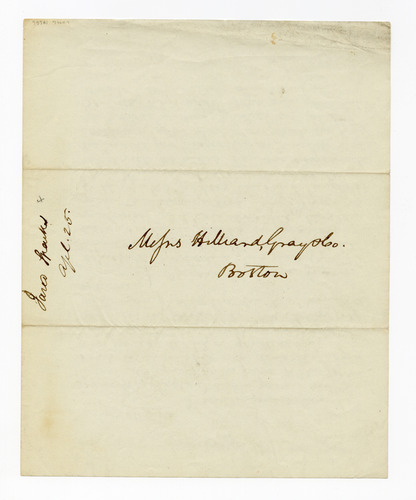 Messrs Hilliard, Gray & Co.
Boston
Jared Sparks
Apl. 25.